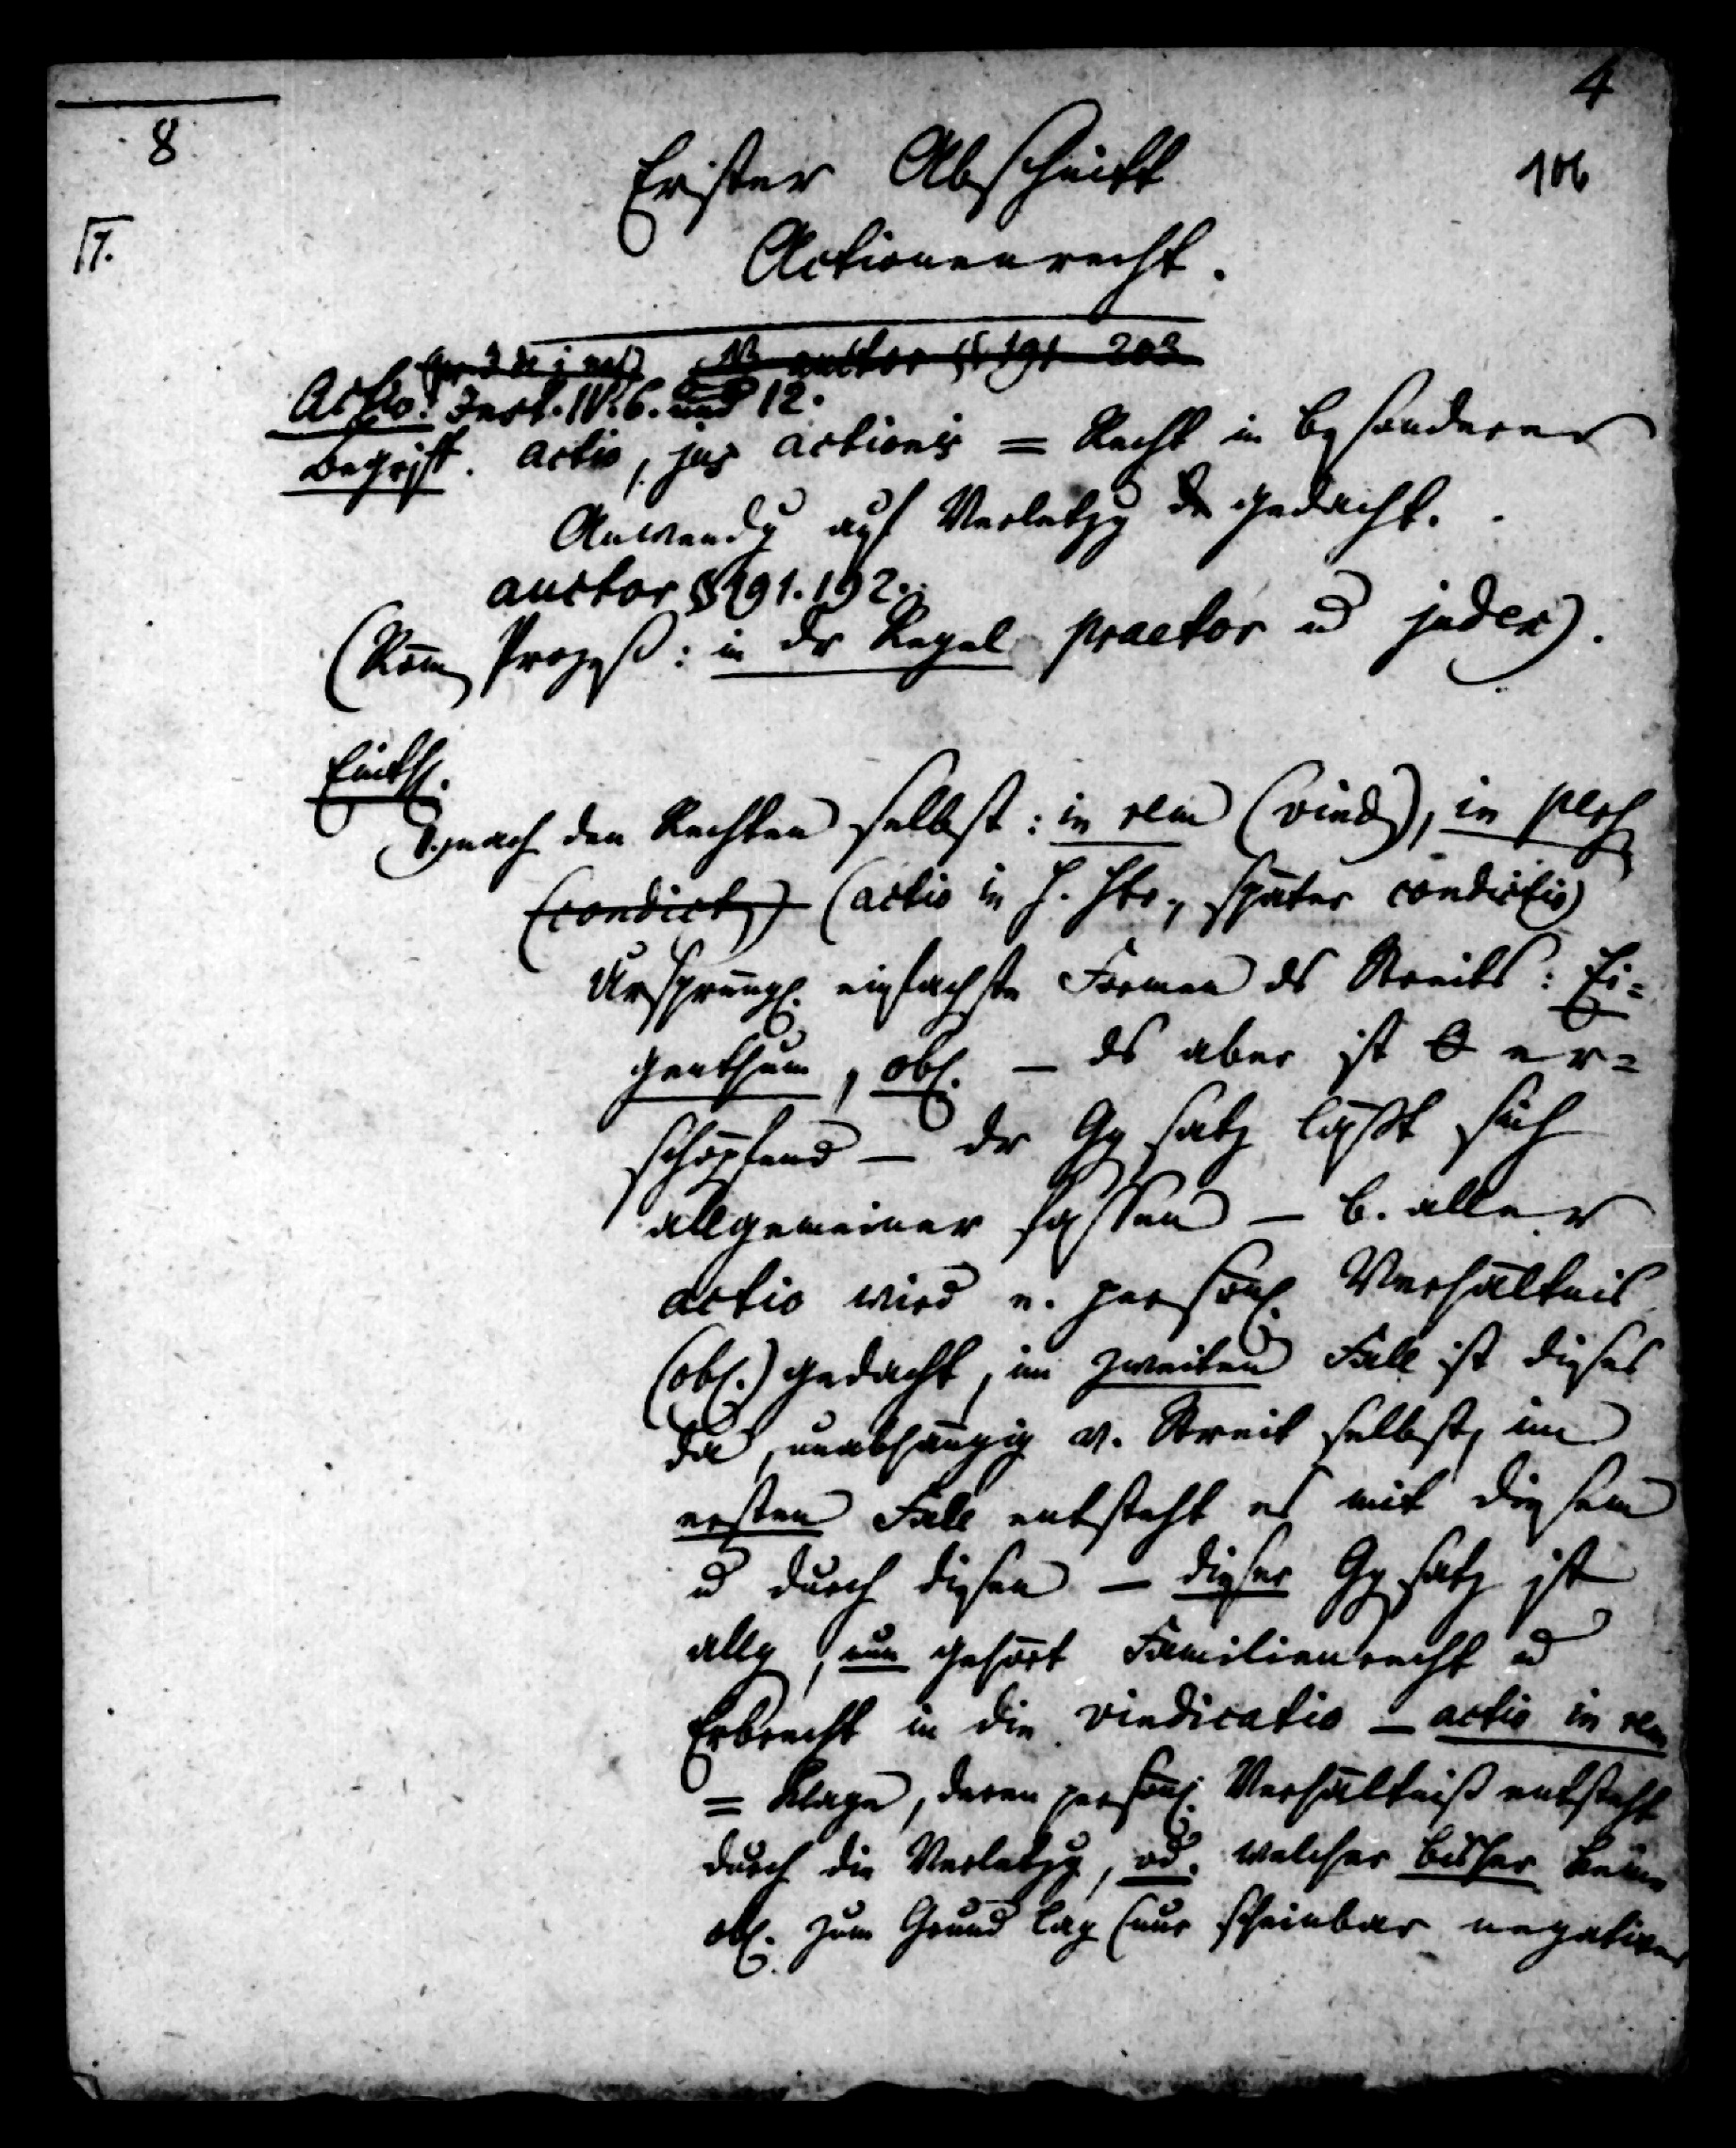 4
8
106
Erster Abschnitt
Actionenrecht.
auctor § 191 203
Actio. Inst. IV. 6. und 12.
Begriff. actio, jus actionis = Recht in besonderer
Anwendg auf Verletzg gedacht.
auctor § 191. 192.
(Röm Prozeß: in dr Regel praetor u judex).
Einth.
1.) nach den Rechten selbst: in rem (vind), in pers
(condict) (actio in später condictio)
Ursprüngl. einfachste Formen ds Streits: Ei=
genthum, obl. – ds aber ist 0 er=
schöpfend – dr Ggsatz läßt sich
allgemeiner fassen – b. aller
actio wird e. persönl. Verhältnis
(obl.) gedacht, im zweiten Fall ist dieses
da, unabhängig v. Streit selbst, im
ersten Fall entsteht es mit diesem
u durch diesen – dieser Ggsatz ist
allg, nun gehört Familienrecht u
Erbrecht in die vindicatio – actio in rem
= Klage, deren persönl. Verhältniß entsteht
durch die Verletzg, od. welcher bisher keine
obl. zum Grund lag (nur scheinbar negativer